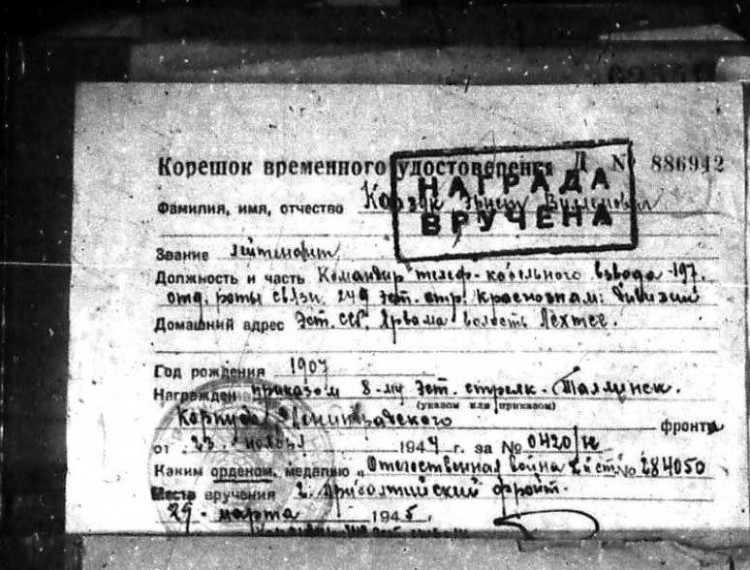 Корешок временного удостоверения Д № 886942
НАГРАДА
ВРУЧЕНА
Фамилия, имя, отчество Эрнст
Звание лейтенант
Должность и часть Командир телеф-кабельного взвода 197.
отд. роты связи 249 Эст. стр. Краснознам. дивизии
Домашний адрес Эст. ССР, Ярвама волость Лехтсе.
Год рождения 1907
Награжден приказом 8-му Эст. стрелк. Таллинск.
(указом или приказом)
Корпуса Ленинградского фронта
от 23. 1944 г. за № 0420/н
Каким орденом, медалью „Отечественная война 2 ст. № 284050
Место вручения 2. Прибалтийский фронт.
29 - марта 1945